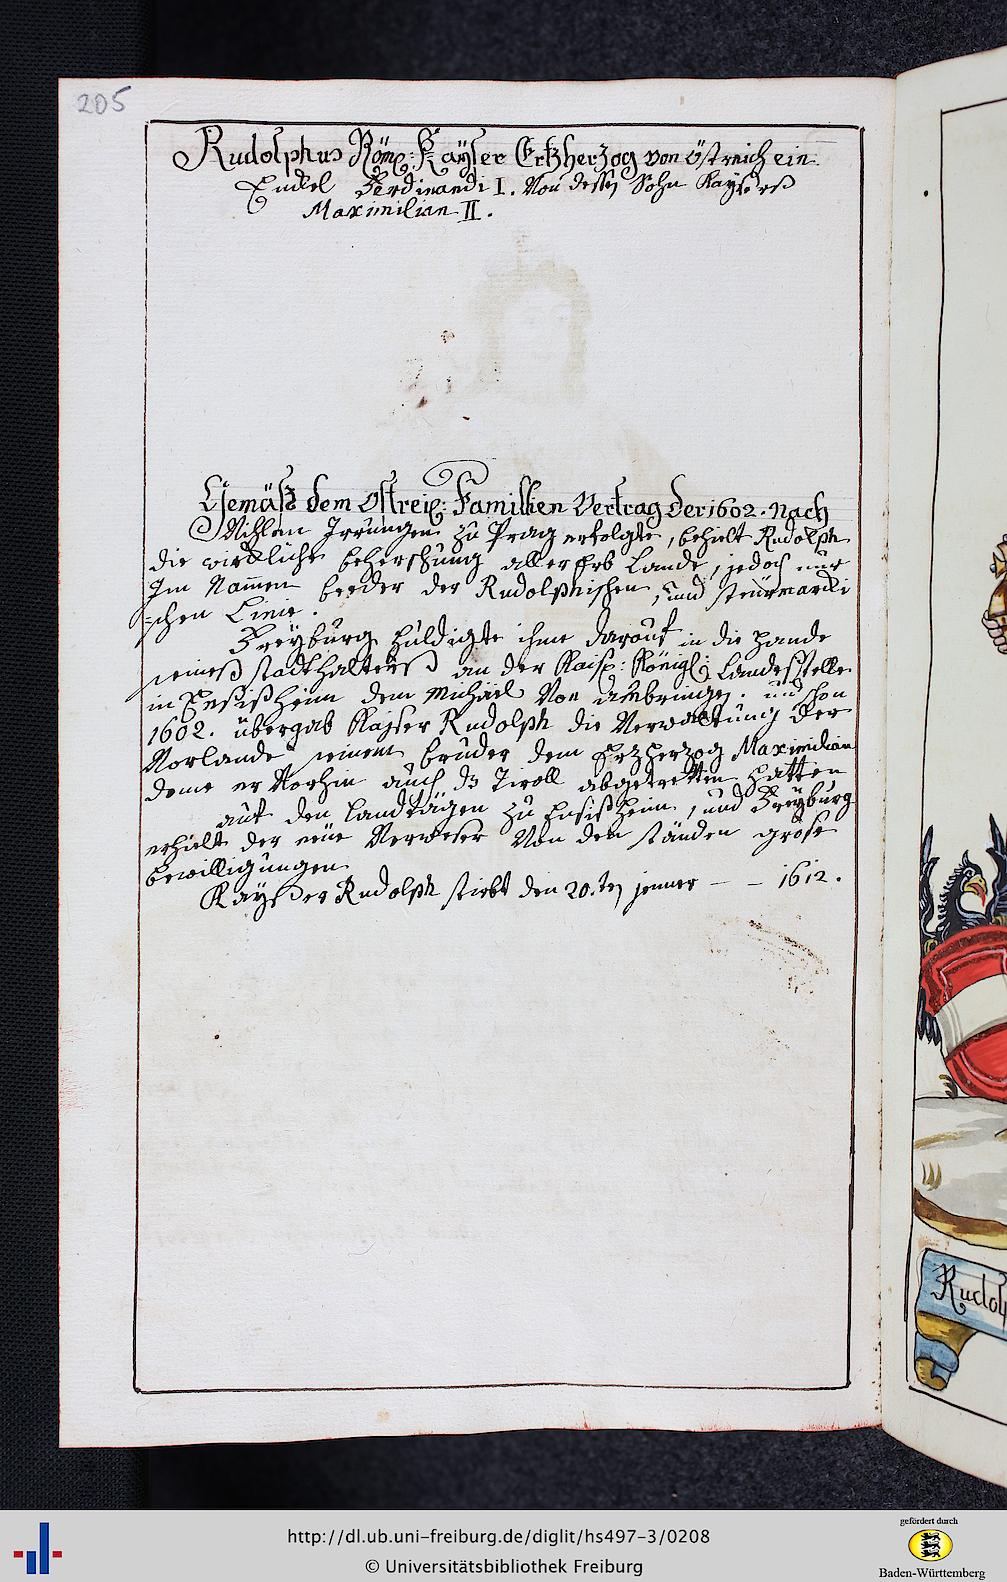 205
Rudolphus Röm: Kaÿser Ertzherzog von östreich ein
Enckel Ferdinandi I. Von dessen Sohn Kaysers
Maximilian II.
Gemäß dem östreich: Familien Vertrag der 1602. nach
Villen Irrungen zu Prag erfolgte, behielt Rudolph
die wirkliche beherschung aller Erb Lande, jedoch nur
Im Namen beeder der Rudolphischen, und steürmarcki
=schen Linie.
Freÿburg huldigte ihme darauf in die Hände
seines stadthalters an der Kaisl: Königl: Landesstelle
in Ensißheim dem Michael Von Ambringen. und schon
1602. übergab Kajser Rudolph die Verwaltung der
Vorlande seinem bruder dem Erzherzog Maximilian
deme er Vorhin auch das Tiroll abgetretten hatten
auf den Landtägen zu Ensißheim, und Freÿburg
erhielt der neüe Verweser Von den ständen große
bewilligungen
Kayser Rudolph stirbt den 20.ten jenner — — 1612.
Rudol
http://dl.ub.uni-freiburg.de/diglit/hs497-3/0208
© Universitätsbibliothek Freiburg
gefördert durch
Baden-Württemberg